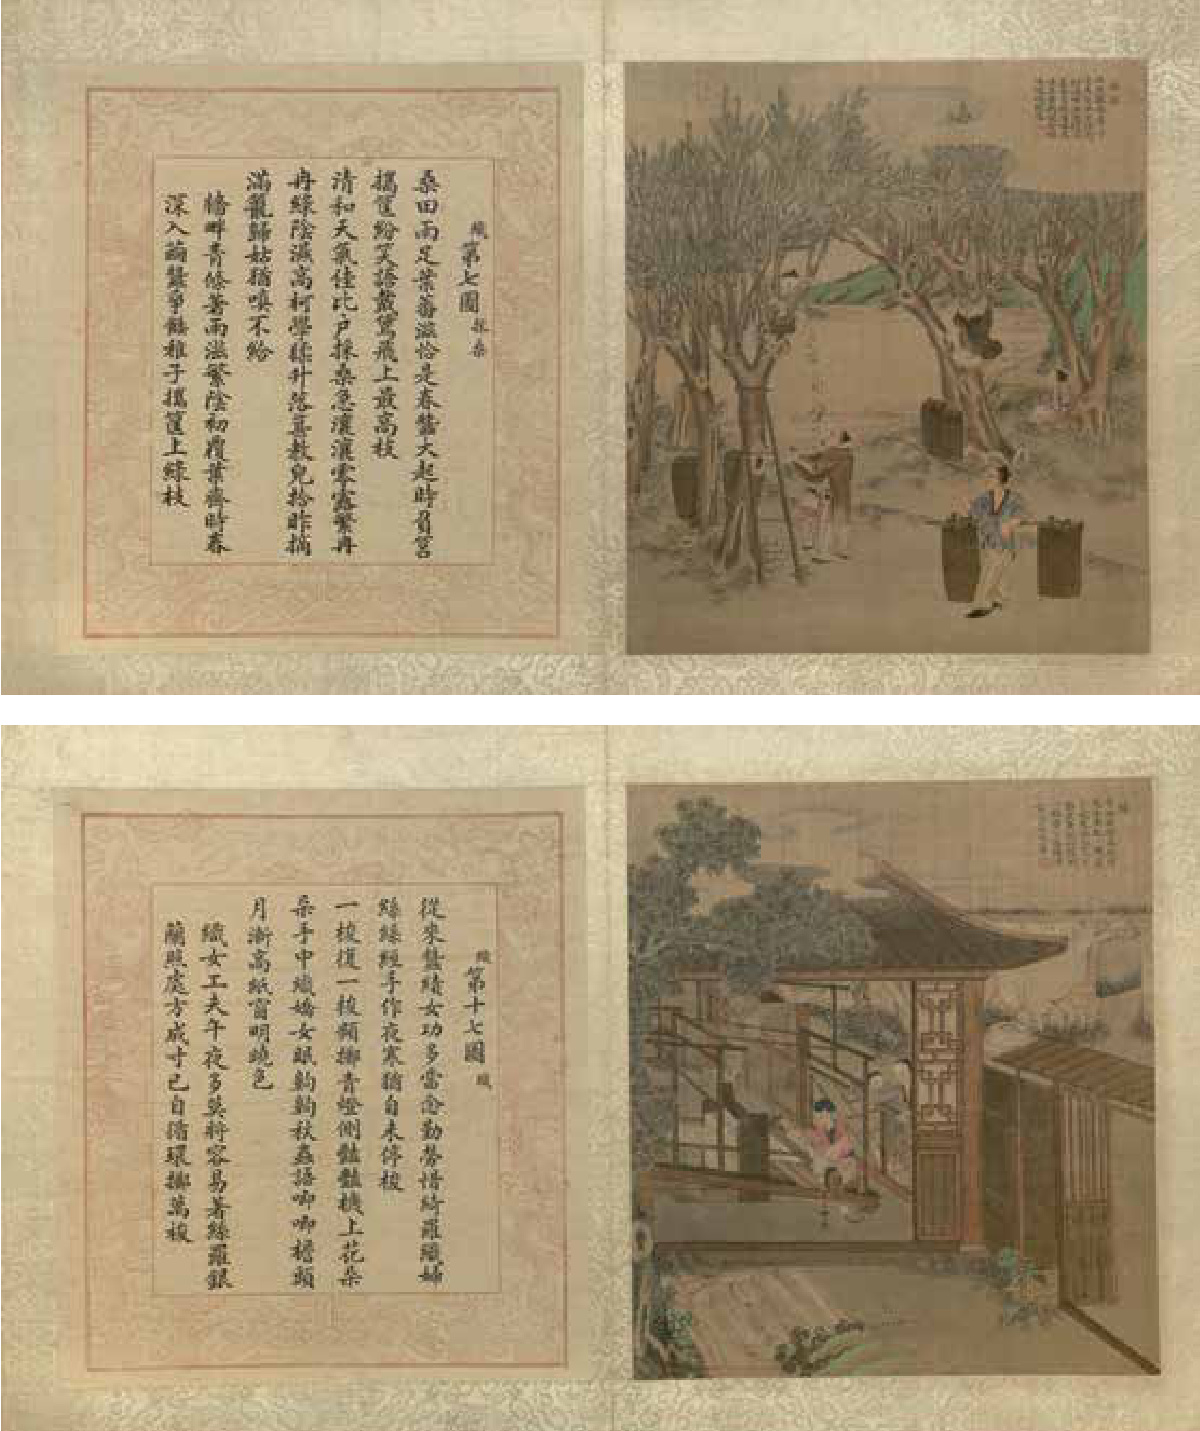 織第七圖採桑
桑田雨足葉蕃滋恰是春蠶大起時負筥
攜筐紛笑語戴鵀飛上最高枝
清和天氣佳比戶採桑急瀼瀼零露繁冉
冉綠陰濕高柯學猱升落葚教兒拾昨摘
滿籠歸姑猶嗔不給
牆畔青條著雨滋繁陰初覆葉齊時春
深入繭蠶爭餧稚子攜筐上綠枝
織第十七圖織
從來蠶績女功多當念勤勞惜綺羅織婦
絲絲經手作夜寒猶自未停梭
一梭復一梭頻擲青燈側豔豔機上花朵
朵手中織嬌女眠齁齁秋蟲語唧唧檐頭
月漸高紙窗明曉色
織女工夫午夜多莫將容易著絲羅銀
蘭照處方成寸已自循環擲萬梭